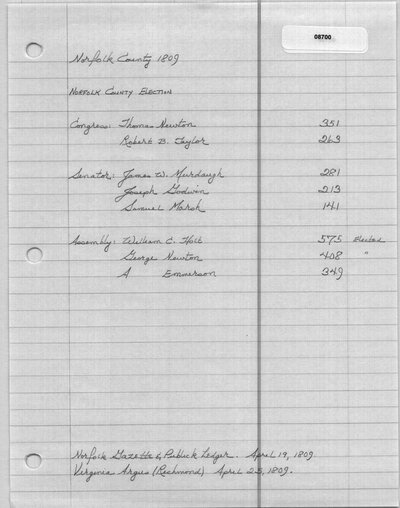 08700
Norfolk County 1809
NORFOLK COUNTY ELECTION
Congress: Thomas Newton 351
Robert B. Taylor 263
Senator: James W. Murdaugh 281
Joseph Godwin 213
Samuel Marsh 141
Assembly: William C. Holt 575 Elected
George Newton 408 "
A Emmerson 349
Norfolk Gazette & Publick Ledger. April 19, 1809.
Virginia Argus (Richmond) April 25, 1809.